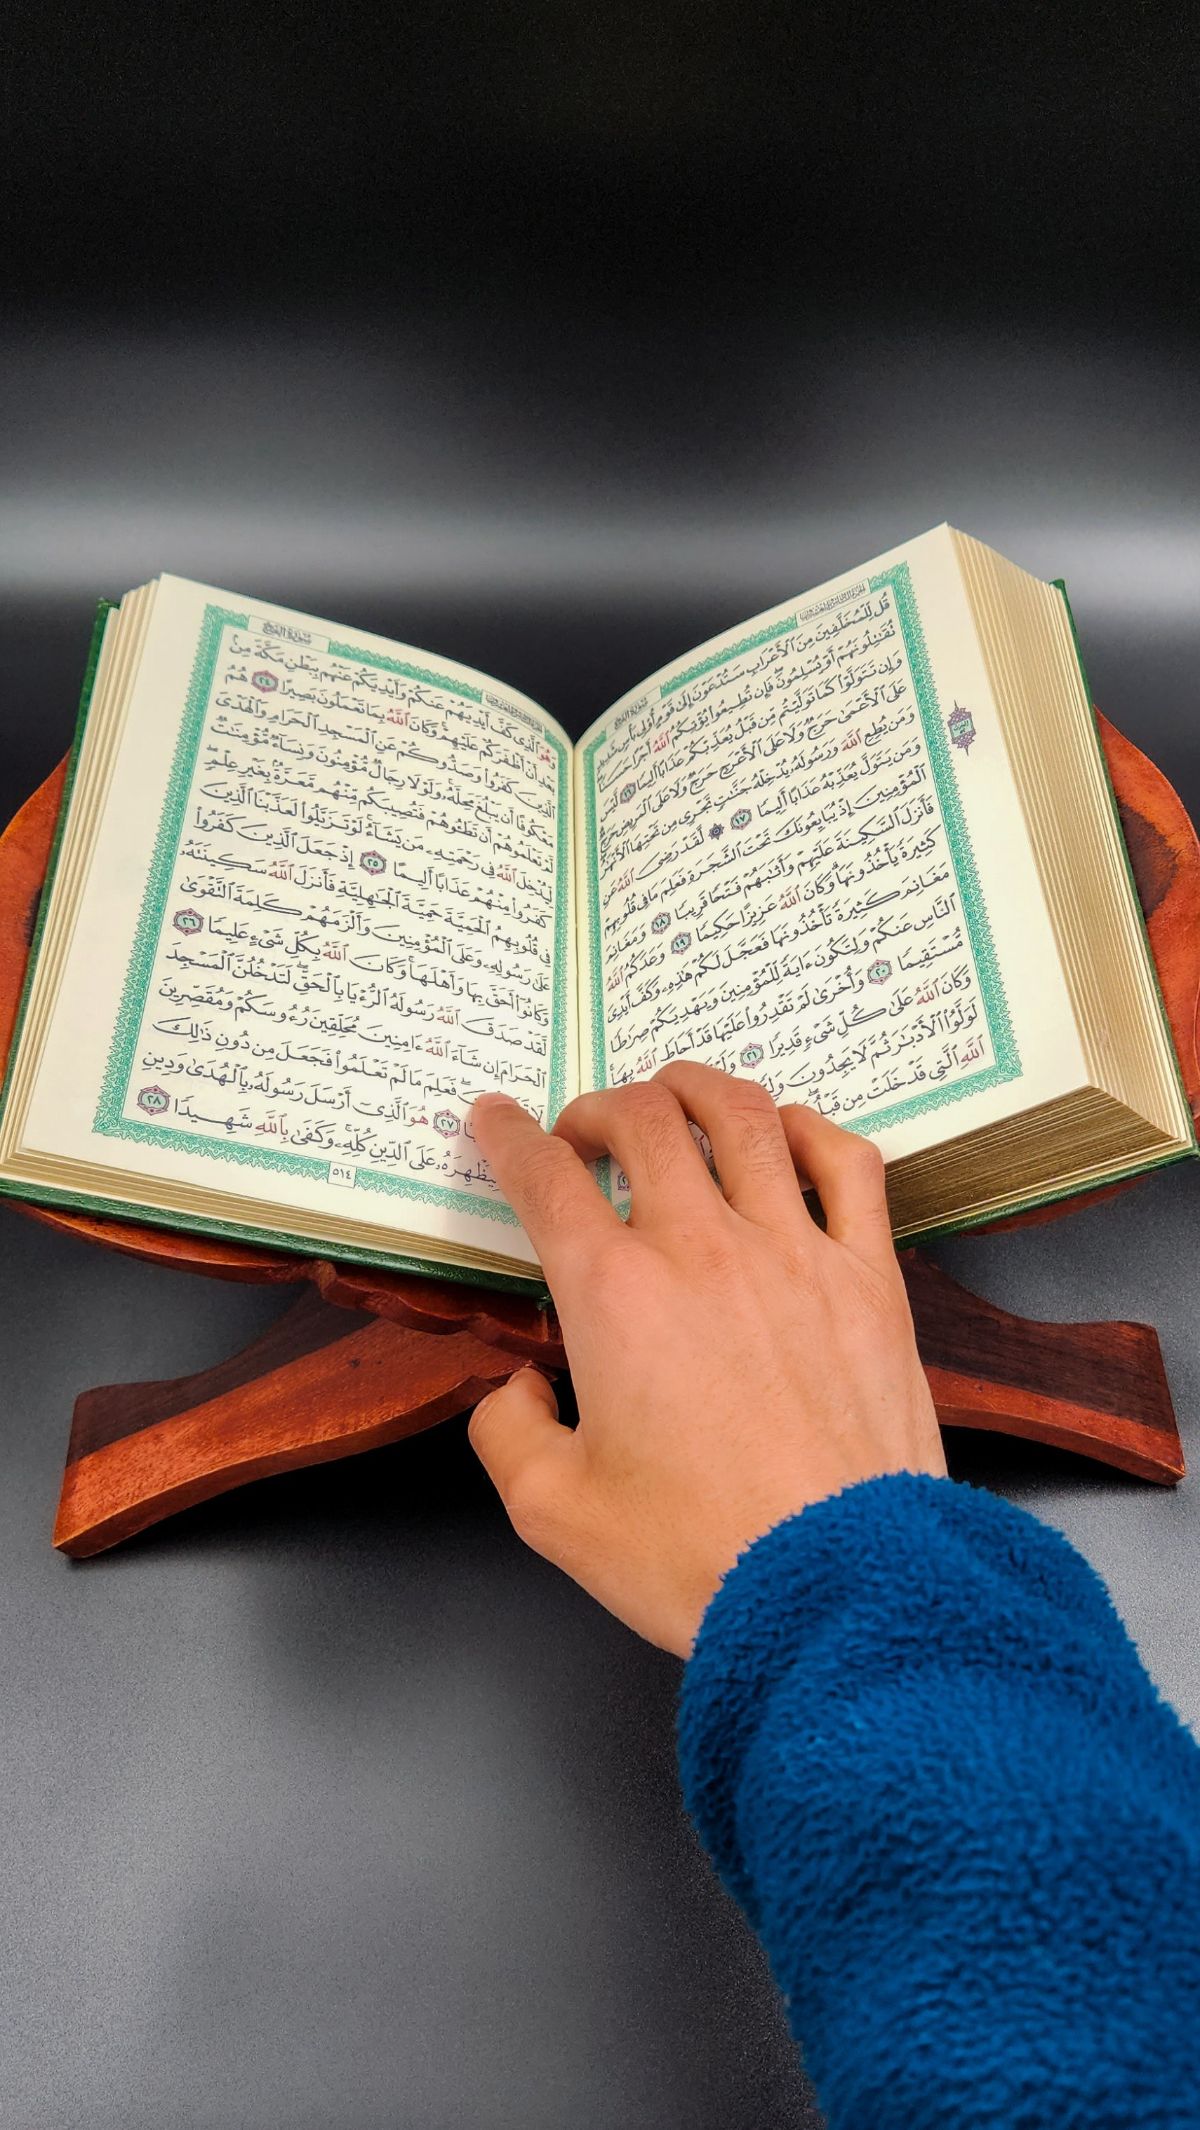 سُورَةُ الفَتْحِ
قُل لِّلْمُخَلَّفِينَ مِنَ ٱلْأَعْرَابِ سَتُدْعَوْنَ إِلَىٰ قَوْمٍ أُو۟لِى بَأْسٍ شَدِيدٍ
تُقَٰتِلُونَهُمْ أَوْ يُسْلِمُونَ ۖ فَإِن تُطِيعُوا۟ يُؤْتِكُمُ ٱللَّهُ أَجْرًا حَسَنًا ۖ
وَإِن تَتَوَلَّوْا۟ كَمَا تَوَلَّيْتُم مِّن قَبْلُ يُعَذِّبْكُمْ عَذَابًا أَلِيمًا ١٦ لَّيْسَ
عَلَى ٱلْأَعْمَىٰ حَرَجٌ وَلَا عَلَى ٱلْأَعْرَجِ حَرَجٌ وَلَا عَلَى ٱلْمَرِيضِ حَرَجٌ ۗ
وَمَن يُطِعِ ٱللَّهَ وَرَسُولَهُۥ يُدْخِلْهُ جَنَّٰتٍ تَجْرِى مِن تَحْتِهَا ٱلْأَنْهَٰرُ ۖ
وَمَن يَتَوَلَّ يُعَذِّبْهُ عَذَابًا أَلِيمًا ١٧ ۞ لَّقَدْ رَضِىَ ٱللَّهُ عَنِ
ٱلْمُؤْمِنِينَ إِذْ يُبَايِعُونَكَ تَحْتَ ٱلشَّجَرَةِ فَعَلِمَ مَا فِى قُلُوبِهِمْ
فَأَنزَلَ ٱلسَّكِينَةَ عَلَيْهِمْ وَأَثَٰبَهُمْ فَتْحًا قَرِيبًا ١٨ وَمَغَانِمَ
كَثِيرَةً يَأْخُذُونَهَا ۗ وَكَانَ ٱللَّهُ عَزِيزًا حَكِيمًا ١٩ وَعَدَكُمُ ٱللَّهُ
مَغَانِمَ كَثِيرَةً تَأْخُذُونَهَا فَعَجَّلَ لَكُمْ هَٰذِهِۦ وَكَفَّ أَيْدِىَ
ٱلنَّاسِ عَنكُمْ وَلِتَكُونَ ءَايَةً لِّلْمُؤْمِنِينَ وَيَهْدِيَكُمْ صِرَٰطًا
مُّسْتَقِيمًا ٢٠ وَأُخْرَىٰ لَمْ تَقْدِرُوا۟ عَلَيْهَا قَدْ أَحَاطَ ٱللَّهُ بِهَا ۚ
وَكَانَ ٱللَّهُ عَلَىٰ كُلِّ شَىْءٍ قَدِيرًا ٢١
لَوَلَّوُا۟ ٱلْأَدْبَٰرَ ثُمَّ لَا يَجِدُونَ
ٱللَّهِ ٱلَّتِى قَدْ خَلَتْ مِن قَبْلُ ۖ
سُورَةُ الفَتْحِ
وَهُوَ ٱلَّذِى كَفَّ أَيْدِيَهُمْ عَنكُمْ وَأَيْدِيَكُمْ عَنْهُم بِبَطْنِ مَكَّةَ مِنۢ
بَعْدِ أَنْ أَظْفَرَكُمْ عَلَيْهِمْ ۚ وَكَانَ ٱللَّهُ بِمَا تَعْمَلُونَ بَصِيرًا ٢٤ هُمُ
ٱلَّذِينَ كَفَرُوا۟ وَصَدُّوكُمْ عَنِ ٱلْمَسْجِدِ ٱلْحَرَامِ وَٱلْهَدْىَ
مَعْكُوفًا أَن يَبْلُغَ مَحِلَّهُۥ ۚ وَلَوْلَا رِجَالٌ مُّؤْمِنُونَ وَنِسَآءٌ مُّؤْمِنَٰتٌ
لَّمْ تَعْلَمُوهُمْ أَن تَطَـُٔوهُمْ فَتُصِيبَكُم مِّنْهُم مَّعَرَّةٌۢ بِغَيْرِ عِلْمٍ ۖ
لِّيُدْخِلَ ٱللَّهُ فِى رَحْمَتِهِۦ مَن يَشَآءُ ۚ لَوْ تَزَيَّلُوا۟ لَعَذَّبْنَا ٱلَّذِينَ
كَفَرُوا۟ مِنْهُمْ عَذَابًا أَلِيمًا ٢٥ إِذْ جَعَلَ ٱلَّذِينَ كَفَرُوا۟
فِى قُلُوبِهِمُ ٱلْحَمِيَّةَ حَمِيَّةَ ٱلْجَٰهِلِيَّةِ فَأَنزَلَ ٱللَّهُ سَكِينَتَهُۥ
عَلَىٰ رَسُولِهِۦ وَعَلَى ٱلْمُؤْمِنِينَ وَأَلْزَمَهُمْ كَلِمَةَ ٱلتَّقْوَىٰ
وَكَانُوٓا۟ أَحَقَّ بِهَا وَأَهْلَهَا ۚ وَكَانَ ٱللَّهُ بِكُلِّ شَىْءٍ عَلِيمًا ٢٦
لَّقَدْ صَدَقَ ٱللَّهُ رَسُولَهُ ٱلرُّءْيَا بِٱلْحَقِّ ۖ لَتَدْخُلُنَّ ٱلْمَسْجِدَ
ٱلْحَرَامَ إِن شَآءَ ٱللَّهُ ءَامِنِينَ مُحَلِّقِينَ رُءُوسَكُمْ وَمُقَصِّرِينَ
لَا فَعَلِمَ مَا لَمْ تَعْلَمُوا۟ فَجَعَلَ مِن دُونِ ذَٰلِكَ
٢٧ هُوَ ٱلَّذِىٓ أَرْسَلَ رَسُولَهُۥ بِٱلْهُدَىٰ وَدِينِ
لِيُظْهِرَهُۥ عَلَى ٱلدِّينِ كُلِّهِۦ ۚ وَكَفَىٰ بِٱللَّهِ شَهِيدًا ٢٨
٥١٤